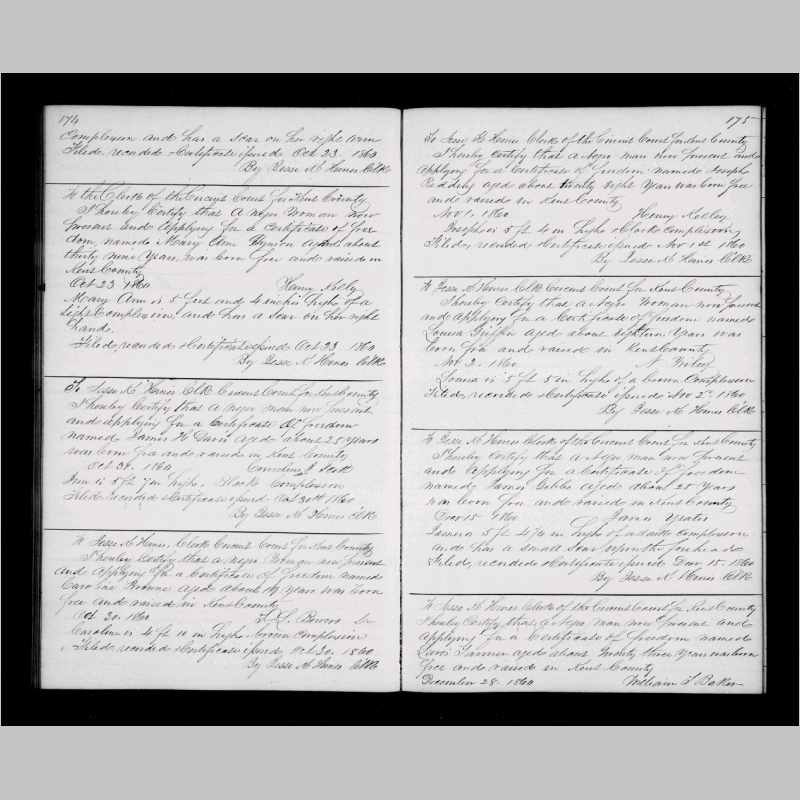 174
Complexion and has a scar on her right arm
Filed, recorded & Certificate issued Oct 23, 1860
By Jesse K Hines Clk
To the Clerk of the Circuit Court for Kent County
I hereby Certify that A Negro Woman now
present and Applying for a Certificate of free
dom, named Mary Ann aged about
thirty nine Years, was born free and raised in
Kent County
Oct 23 1860 Henry Kelley
Mary Ann is 5 feet and 4 inches high, of a
light Complexion, and has a scar on her right
hand.
Filed, recorded & Certificate issued Oct 23 1860
By Jesse K Hines Clk
To Jesse K Hines Clk Circuit Court for Kent County
I hereby Certify that a Negro man now present
and applying for a Certificate of freedom
named James H Davis aged about 25 Years
was born free and raised in Kent County
Oct 30. 1860
is 5 ft 7 in high, Black Complexion
Filed recorded & Certificate issued Oct 30th 1860
By Jesse K Hines Clk
To Jesse K Hines, Clerk Circuit Court for Kent County
I hereby Certify that a Negro Woman now present
and Applying for a Certificate of Freedom named
Caroline aged about 19 Years was born
free and raised in Kent County
Oct 30. 1860 Bowers
Caroline is 4 ft 10 in high, brown Complexion
Filed, recorded & Certificate issued, Oct 30. 1860
By Jesse K Hines Clk
175
To Jesse K Hines Clerk of the Circuit Court for Kent County
I hereby Certify that a Negro man now present and
Applying for a Certificate of freedom named Joseph
Redding aged about twenty eight Years was born free
and raised in Kent County
Nov 1. 1860 Henry Kelley
Joseph is 5 ft 4 in high, & Black Complexion
Filed, recorded & Certificate issued Nov 1st 1860
By Jesse K Hines Clk
To Jesse K Hines Clk Circuit Court for Kent County
I hereby Certify that a Negro Woman now present
and Applying for a Certificate of Freedom named
Louisa Griffin aged about eighteen Years was
born free and raised in Kent County
Nov 2. 1860
Louisa is 5 ft 5 in high, of a brown Complexion
Filed, recorded & Certificate issued Nov 2d 1860
By Jesse K Hines Clk
To Jesse K Hines Clerk of the Circuit Court for Kent County
I hereby Certify that a Negro man now present
and Applying for a Certificate of Freedom
named James Gibbs aged about 25 Years
was born free and raised in Kent County
Dec 15 1860 James Yeates
James is 5 ft 4¾ in high of a dark complexion
and has a small scar upon the forehead
Filed, recorded & Certificate issued Dec 15. 1860
By Jesse K Hines Clk
To Jesse K Hines Clerk of the Circuit Court for Kent County
I hereby Certify that a Negro man now present and
Applying for a Certificate of freedom named
aged about twenty three Years was born
free and raised in Kent County
December 28. 1860 William T Baker